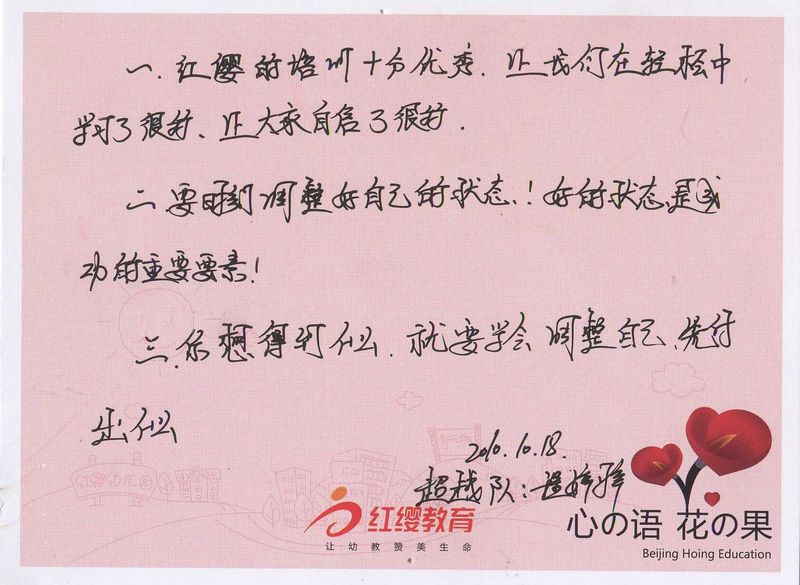 一.红缨的培训十分优秀.让我们在轻松中
学习了很好、让大家自信了很好.
二要时刻调整好自己的状态.!好的状态是成
功的重要要素!
三.你想得到什么.就要学会调整自己、先付
出什么
2010.10.18.
超越队:
红缨幼儿园
红缨教育
让幼教赞美生命
心の语 花の果
Beijing Hoing Education